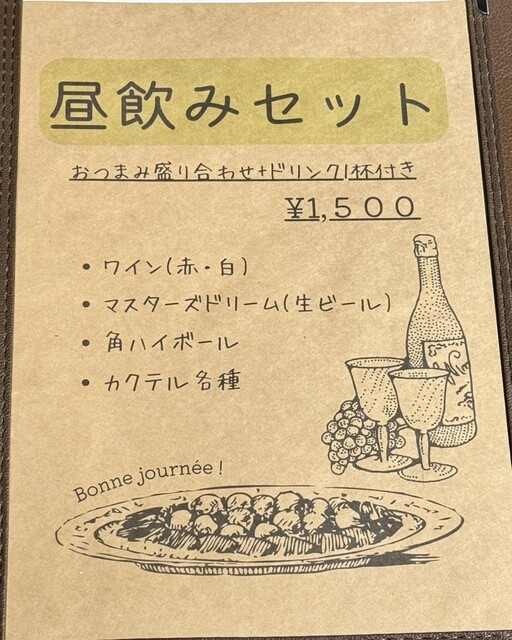 昼飲みセット
おつまみ盛り合わせ+ドリンク1杯付き
¥1,500
• ワイン(赤・白)
• マスターズドリーム(生ビール)
• 角ハイボール
• カクテル各種
Bonne journée !